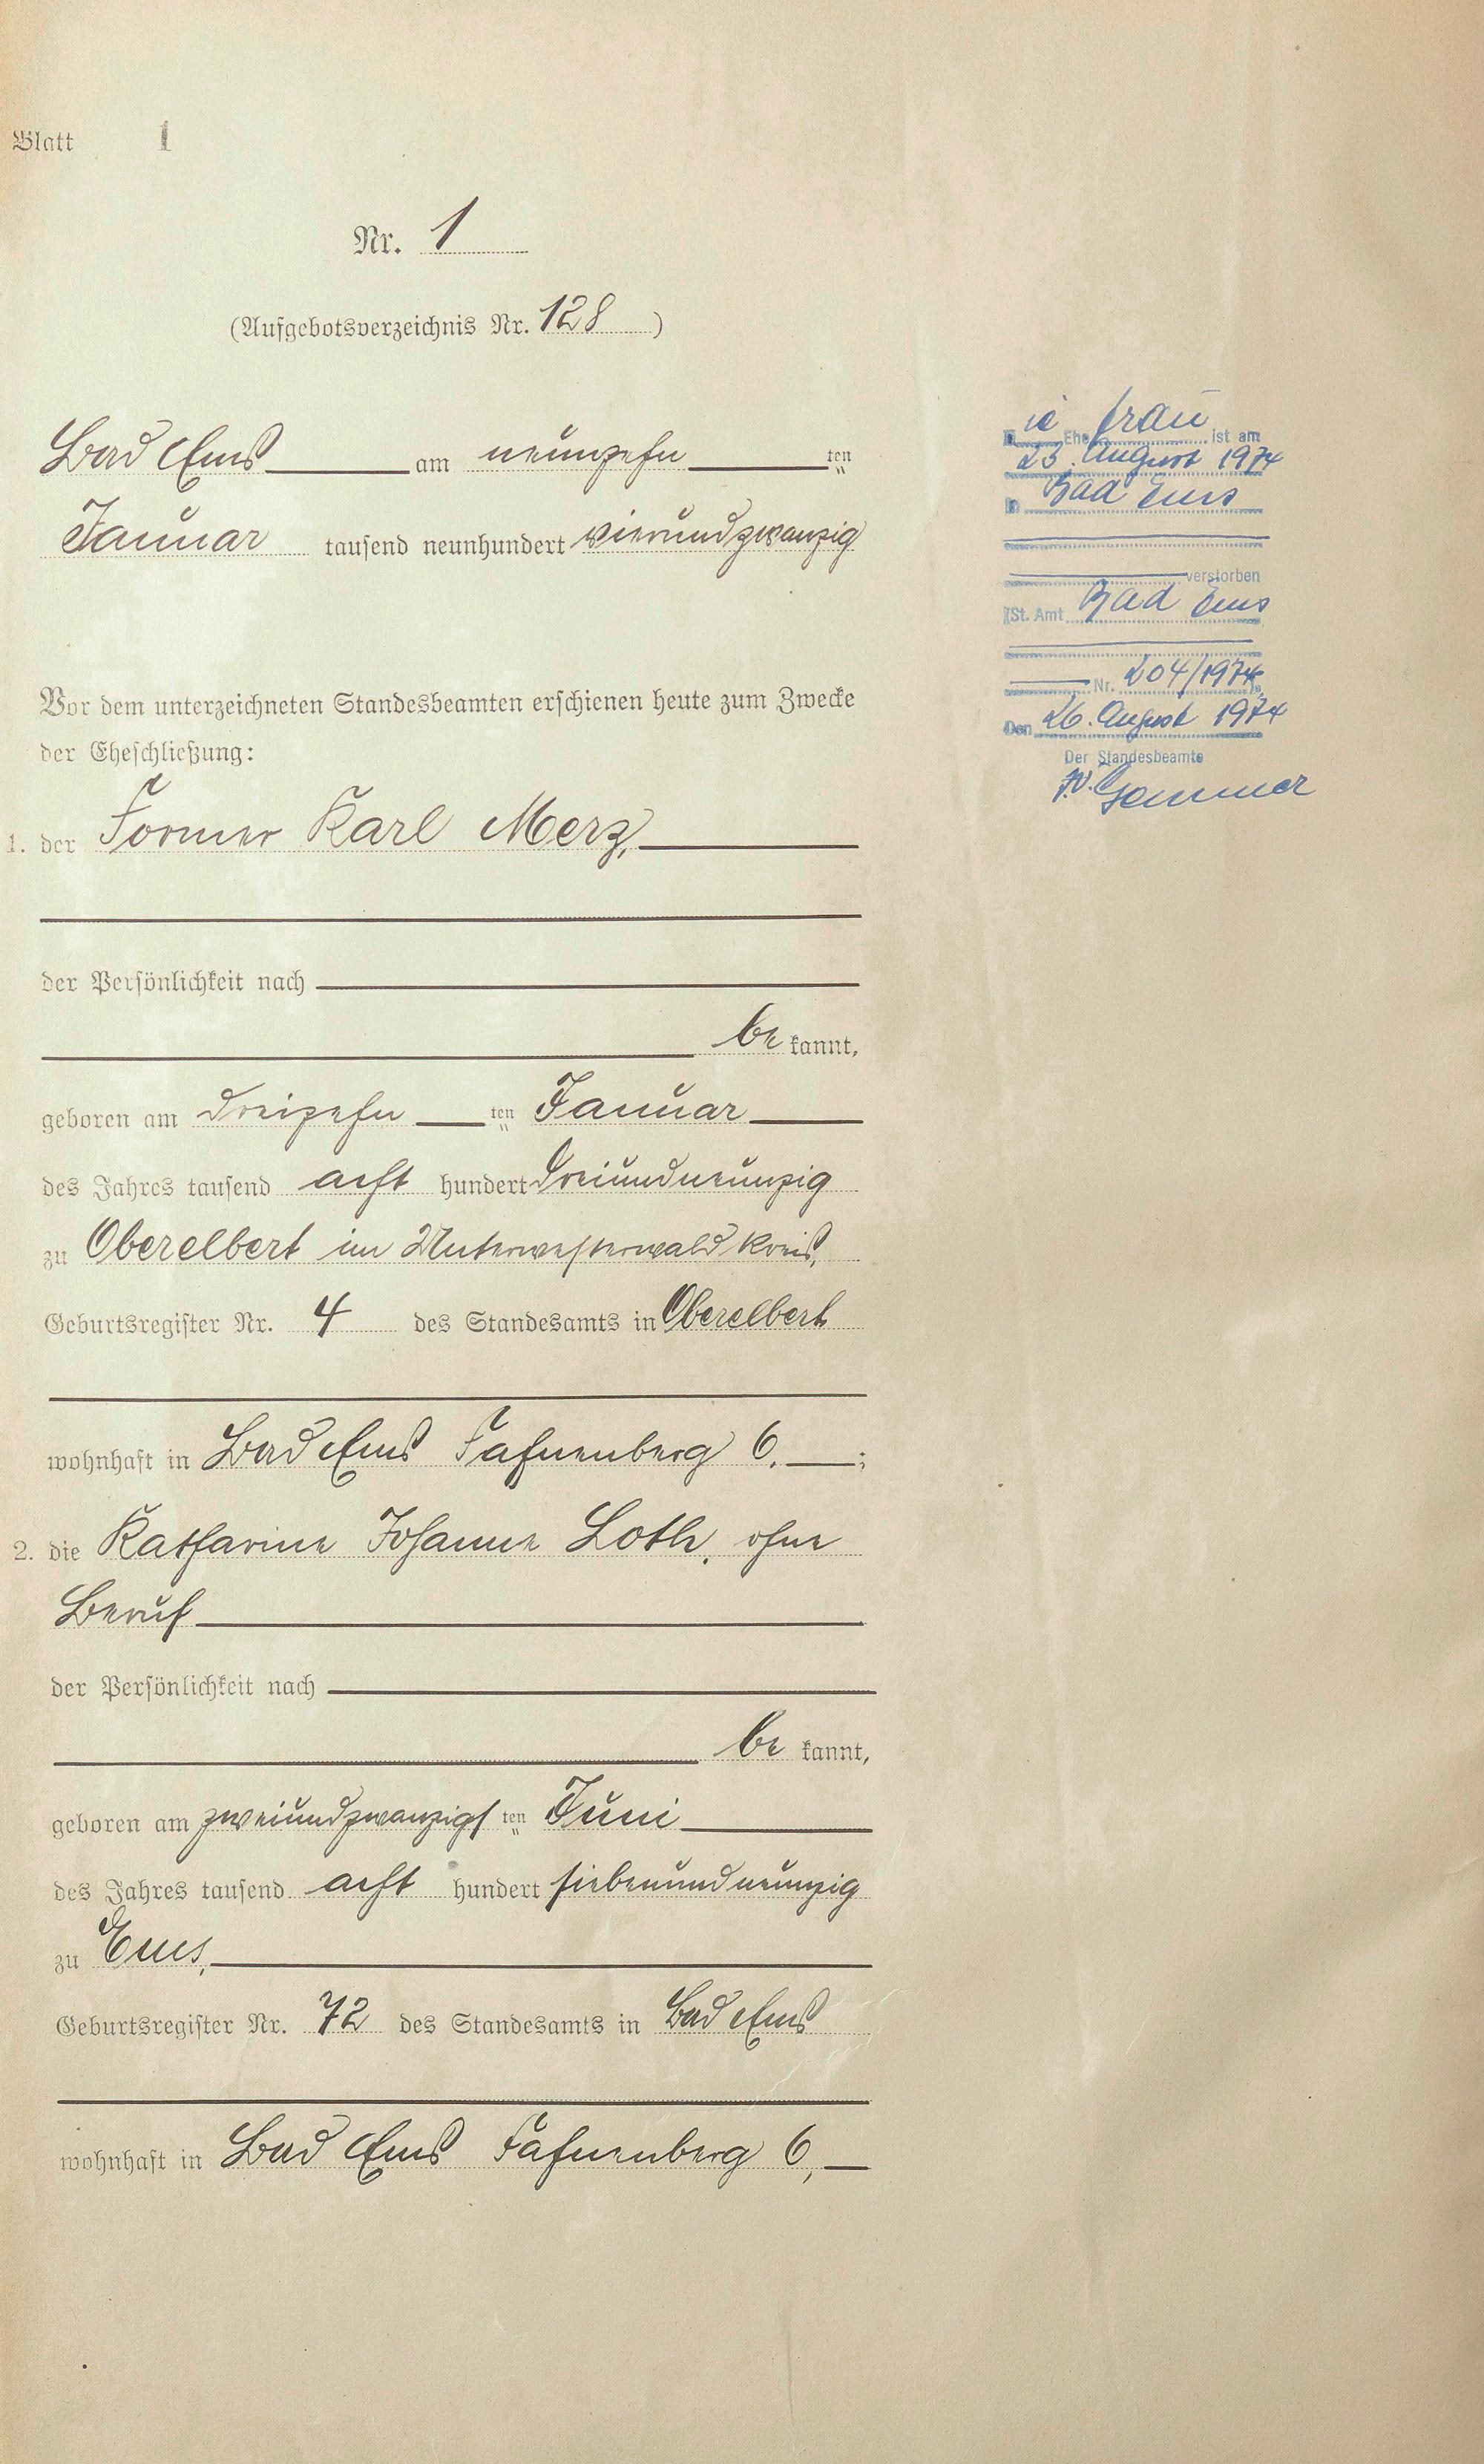 Blatt 1
Nr. 1
(Aufgebotsverzeichnis Nr. 128)
Bad Ems am neunzehn ten
Januar tausend neunhundert vierundzwanzig
Vor dem unterzeichneten Standesbeamten erschienen heute zum Zwecke
der Eheschließung:
1. der Former Karl Merz,
der Persönlichkeit nach
be kannt,
geboren am dreizehn ten Januar
des Jahres tausend acht hundert dreiundneunzig
zu Oberelbert im Unterwesterwaldkreis,
Geburtsregister Nr. 4 des Standesamts in Oberelbert
wohnhaft in Bad Ems Fahnenberg 6. ;
2. die Katharine Johanne Loth, ohne
Beruf
der Persönlichkeit nach
be kannt,
geboren am zweiundzwanzigs ten Juni
des Jahres tausend acht hundert siebenundneunzig
zu Ems,
Geburtsregister Nr. 72 des Standesamts in Bad Ems
wohnhaft in Bad Ems Fahnenberg 6,
Die Ehefrau ist am
23. August 1974
in Bad Ems
verstorben
(St. Amt Bad Ems
Nr. 204/1974)
Den 26. August 1974
Der Standesbeamte